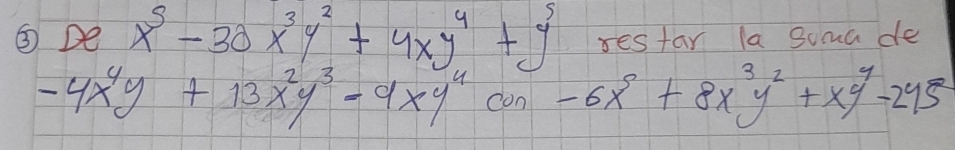 ⑤ De x⁵ - 30x³y² + 4xy⁴ + y⁵ restar la suma de
-4x⁴y + 13x²y³ - 9xy⁴ con -6x⁵ + 8x³y² + xy⁴ - 2y5